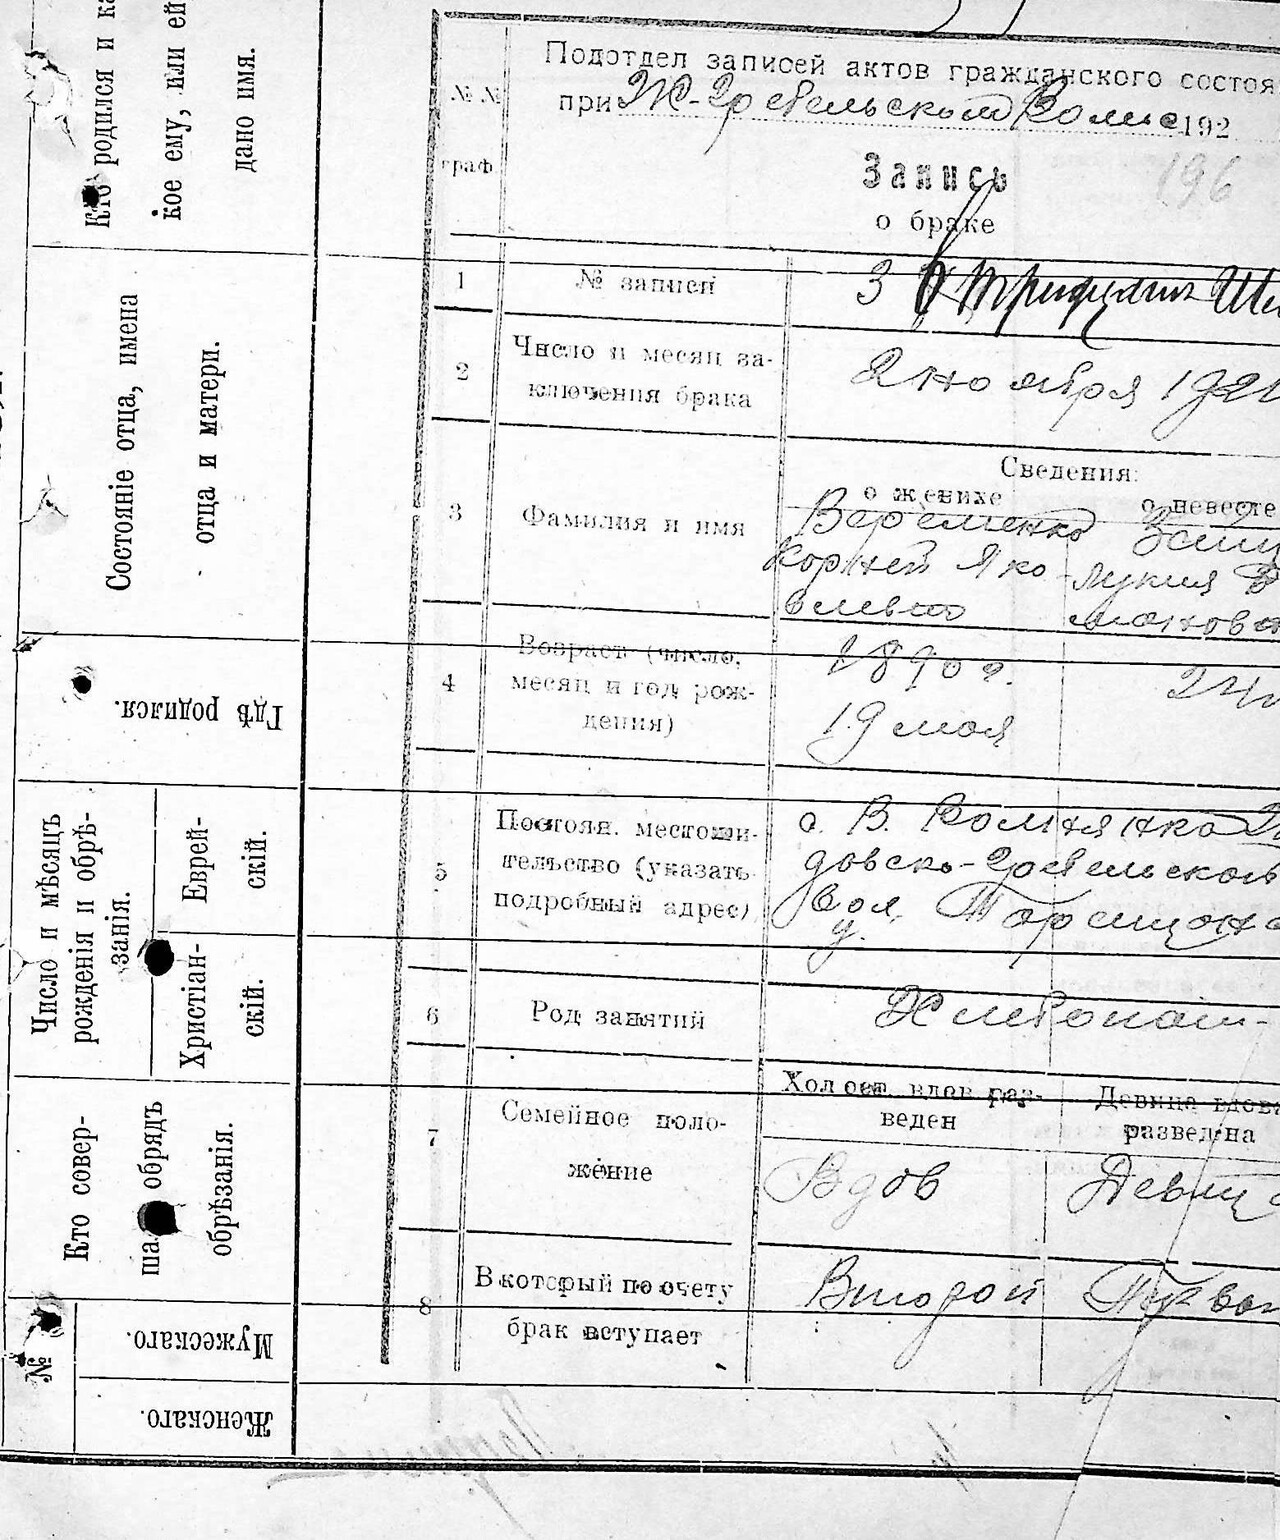 Кто родился и ка
кое ему, или ей
дано имя.
Состояніе отца, имена
отца и матери.
Гдѣ родился.
Число и мѣсяцъ
рожденія и обрѣ-
занія.
Еврей-
скій.
Христіан-
скій.
Кто совер-
ша обрядъ
обрѣзанія.
№
Мужескаго.
Женскаго.
№ №
граф
Подотдел записей актов гражданского состоя
при Ж-Гребельском Волис 192
196
Запись
о браке
1 № записи 3
2 Число и месяц за-
ключения брака
2 ноября 192
Сведения:
о женихе о невесте
3 Фамилия и имя
Веременко
Корней Яко-
влевич
4 Возраст (число,
месяц и год рож-
дения)
1890 г.
19 мая
5 Постоян. местожи-
тельство (указать
подробный адрес)
с. В.
довско-Гребельской
Вол.
у.
6 Род занятий
Хлебопаш-
7 Семейное поло-
жение
Холост. вдов раз-
веден
Девица вдова
разведена
Вдов Девица
8 В который по счету
брак вступает
Второй